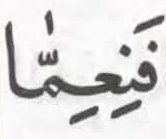 فَنِعِمَّا